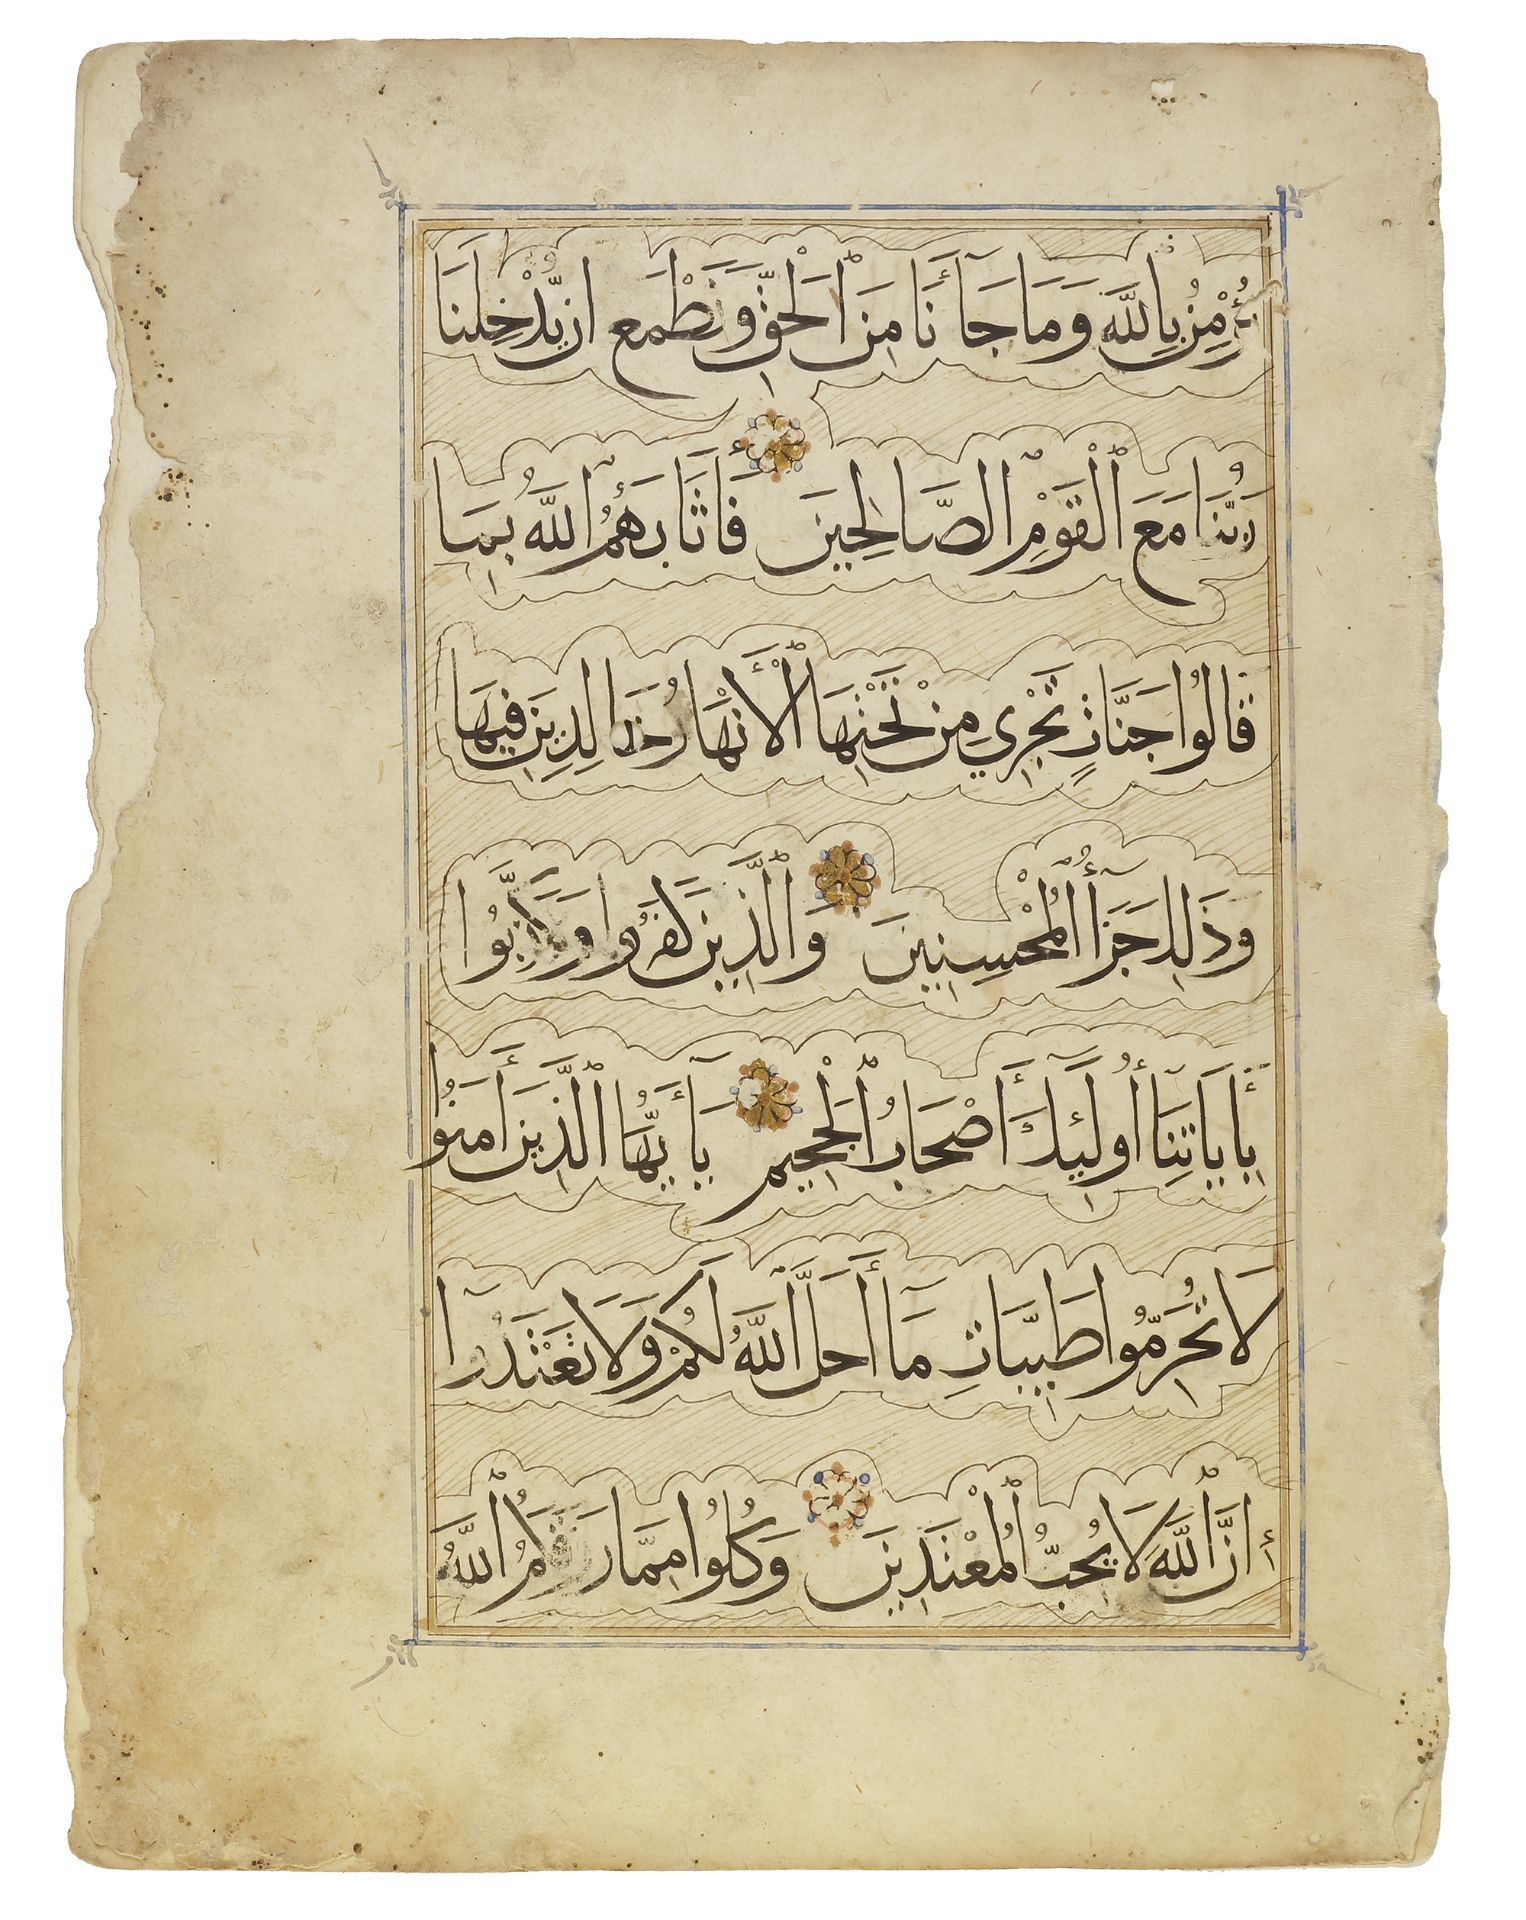 نُؤْمِنُ بِاللَّهِ وَمَا جَآءَنَا مِنَ الْحَقِّ وَنَطْمَعُ ان يُدْخِلَنَا
رَبُّنَا مَعَ الْقَوْمِ الصَّالِحِينَ فَأَثَابَهُمُ اللَّهُ بِمَا
قَالُوا جَنَّاتٍ تَجْرِي مِنْ تَحْتِهَا الْأَنْهَارُ خَالِدِينَ فِيهَا
وَذَلِكَ جَزَآءُ الْمُحْسِنِينَ وَالَّذِينَ كَفَرُوا وَكَذَّبُوا
بِأَيَاتِنَا أُولَئِكَ أَصْحَابُ الْجَحِيمِ يَآ أَيُّهَا الَّذِينَ أَمَنُوا
لَا تُحَرِّمُوا طَيِّبَاتِ مَآ أَحَلَّ اللَّهُ لَكُمْ وَلَا تَعْتَدُوآ
انَّ اللَّهَ لَا يُحِبُّ الْمُعْتَدِينَ وَكُلُوا مِمَّا رَزَقَكُمُ اللَّهُ